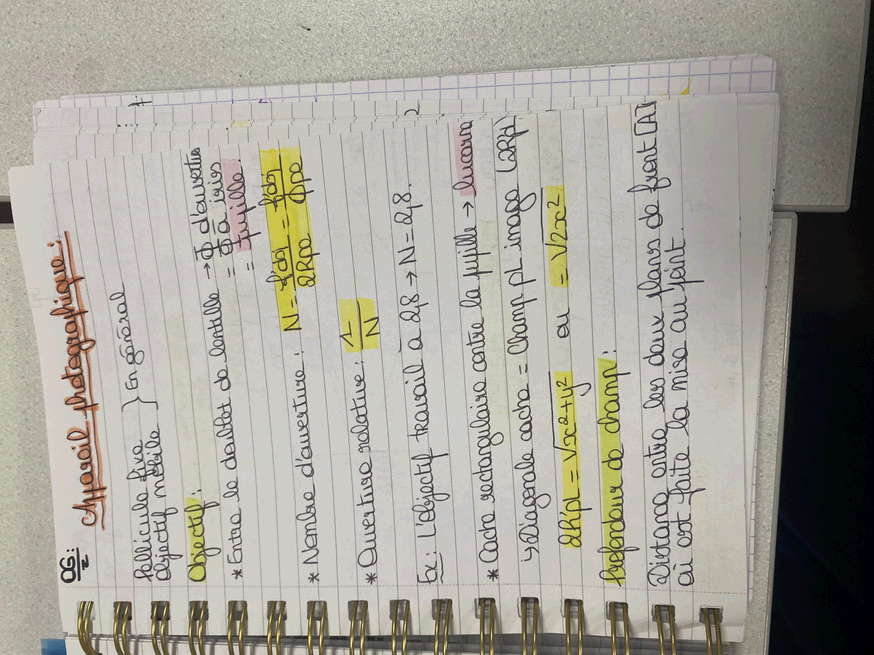 OG:
Appareil photographique:
Pellicule fixe } En général
Objectif mobile
Objectif:
* Entre le doublet de lentille → Φ d'ouverture
= Φ à iris
= pupille.
* Nombre d'ouverture: N = f'obj/2Rpe = f'obj/Φpe
* Ouverture relative: 1/N
Ex: L'objectif travail à 2,8 → N = 2,8.
* Cache rectangulaire contre la pellicule → lucarne
↳ Diagonale cache = Champ pL image (2Rp)
2R'pL = √x²+y² ou = √2x²
Profondeur de champ:
Distance entre les deux plans de front [A]
où est faite la mise au point.